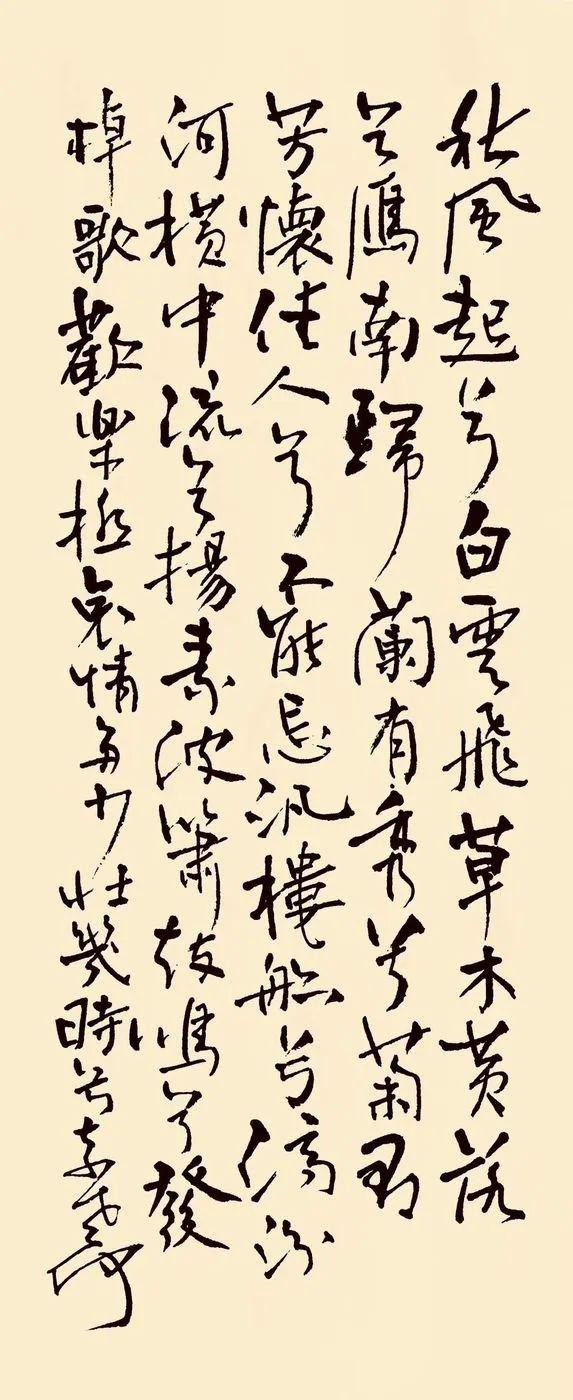 秋風起兮白雲飛草木黄落
兮鴈南歸蘭有秀兮菊有
芳懷佳人兮不能忘汎樓船兮濟汾
河橫中流兮揚素波簫鼓鳴兮發
棹歌歡樂極哀情多少壯幾時兮奈老何